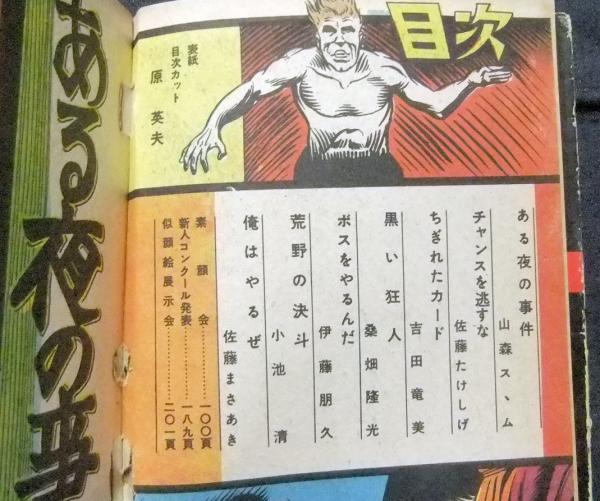 目次
表紙
目次カット
原 英夫
ある夜の事件
山森スヽム
チャンスを逃すな
佐藤たけしげ
ちぎれたカード
吉田竜美
黒い狂人
桑畑隆光
ボスをやるんだ
伊藤朋久
荒野の決斗
小池 清
俺はやるぜ
佐藤まさあき
素顔会…………一〇〇頁
新人コンクール発表…………一八九頁
似顔絵展示会…………二〇一頁
ある夜の事